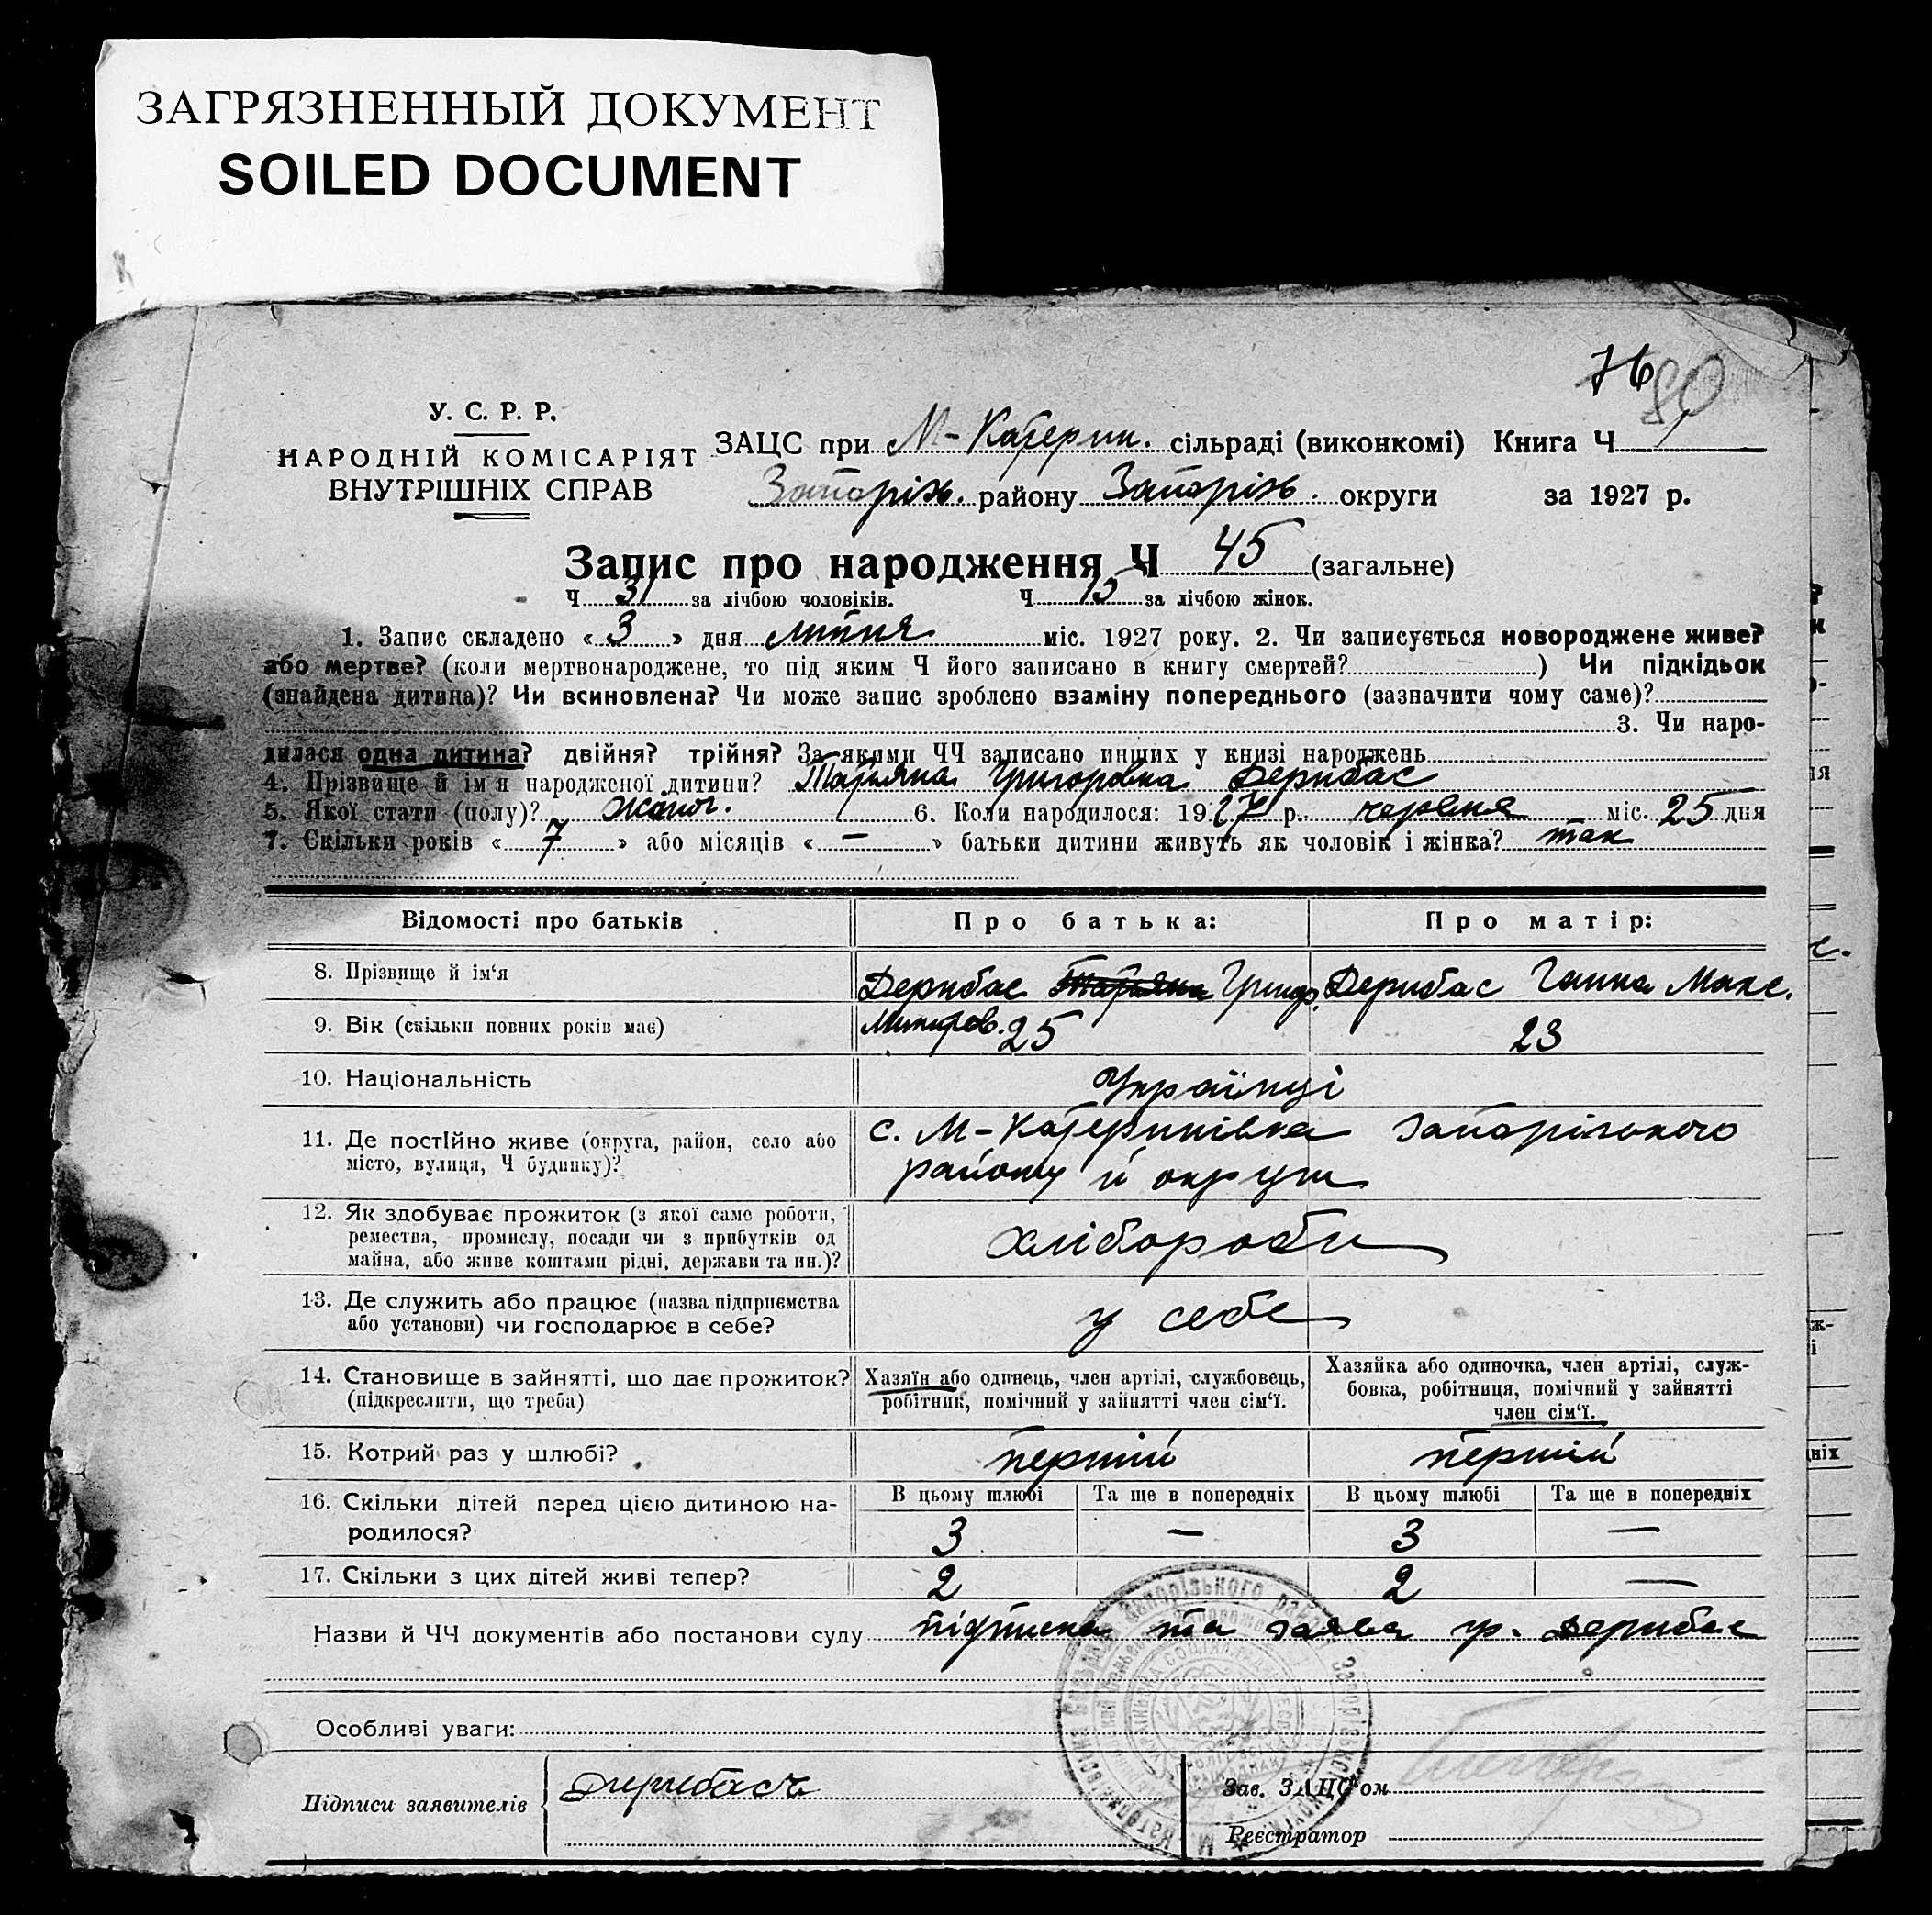 ЗАГРЯЗНЕННЫЙ ДОКУМЕНТ
SOILED DOCUMENT
76
80
У. С. Р. Р.
НАРОДНІЙ КОМІСАРІЯТ
ВНУТРІШНІХ СПРАВ
ЗАЦС при М-Катерин. сільраді (виконкомі) Книга Ч
Запоріж. району Запоріж. округи за 1927 р.
Запис про народження Ч 45 (загальне)
Ч 31 за лічбою чоловіків. Ч за лічбою жінок.
1. Запис складено « 3 » дня липня міс. 1927 року. 2. Чи записується новороджене живе?
або мертве? (коли мертвонароджене, то під яким Ч його записано в книгу смертей? ) Чи підкідьок
(знайдена дитина)? Чи всиновлена? Чи може запис зроблено взаміну попереднього (зазначити чому саме)?
3. Чи наро-
дилася одна дитина? двійня? трійня? За якими ЧЧ записано инших у книзі народжень
4. Прізвище й ім'я народженої дитини? Татьяна Григоровна Дерибас
5. Якої стати (полу)? жіноч. 6. Коли народилося: 1927 р. червня міс. 25 дня
7. Скільки років « 7 » або місяців « — » батьки дитини живуть як чоловік і жінка? так
Відомості про батьків Про батька: Про матір:
8. Прізвище й ім'я Дерибас Татьяна Григор. Дерибас Ганна Макс.
9. Вік (скільки повних років має) 25 23
10. Національність Українці
11. Де постійно живе (округа, район, село або
місто, вулиця, Ч будинку)?
с. М-Катеринівка Запорізького
району й округи
12. Як здобуває прожиток (з якої саме роботи,
ремества, промислу, посади чи з прибутків од
майна, або живе коштами рідні, держави та ин.)?
хлібороби
13. Де служить або працює (назва підприємства
або установи) чи господарює в себе?
у себе
14. Становище в зайнятті, що дає прожиток?
(підкреслити, що треба)
Хазяїн або одинець, член артілі, службовець,
робітник, помічний у зайнятті член сім'ї.
Хазяйка або одиночка, член артілі, служ-
бовка, робітниця, помічний у зайнятті
член сім'ї.
15. Котрий раз у шлюбі? перший перший
16. Скільки дітей перед цією дитиною на-
родилося?
В цьому шлюбі Та ще в попередніх В цьому шлюбі Та ще в попередніх
3 — 3 —
17. Скільки з цих дітей живі тепер? 2 2 —
Назви й ЧЧ документів або постанови суду підписка та заява гр. Дерибас
Особливі уваги:
Підписи заявителів
Зав. ЗАЦС'ом
Реєстратор